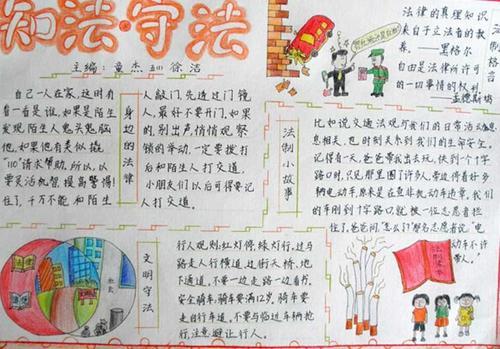 知法·守法
主编：童杰 五(1) 徐洁
自己一人在家，这时有
自一看是谁，如果是陌生
发现陌生人鬼头鬼脑
他，如果他有类似撬
"110"请求帮助。所以，以
要灵活机智提高警惕！
住了，千万不能和陌生
身边的法律
人敲门，先透过门镜
人，最好不要开门，如果
的，别出声，悄悄观察
锁的举动，一定要拨打
后和陌生人打交道，
小朋友们以后可得要记
人打交道。
法律的真理知识
来自于立法者的教
养。——黑格尔
自由是法律所许可
的一切事情的权利。
——孟德斯鸠
法制格言
法制小故事
比如说交通法规与我们的日常生活
息息相关，也时刻关系到我们的生命安全。
记得有一天，爸爸带我出去玩，快到一个十字
路口时，只见那里围了许多人，旁边停着好多
辆电动车，原来是在查非机动车违章，我们
的车刚到十字路口就被一位志愿者拦
住了，爸爸问"怎么了？"那名志愿者说："电
动车不许
带人。"
文明守法
行人规则：红灯停，绿灯行，过马
路走人行横道，过街天桥、地
下通道，不要一边走路一边看书。
安全骑车，骑车要满12岁，骑车要
走自行车道，不要与临近车辆抢
行，注意避让行人。